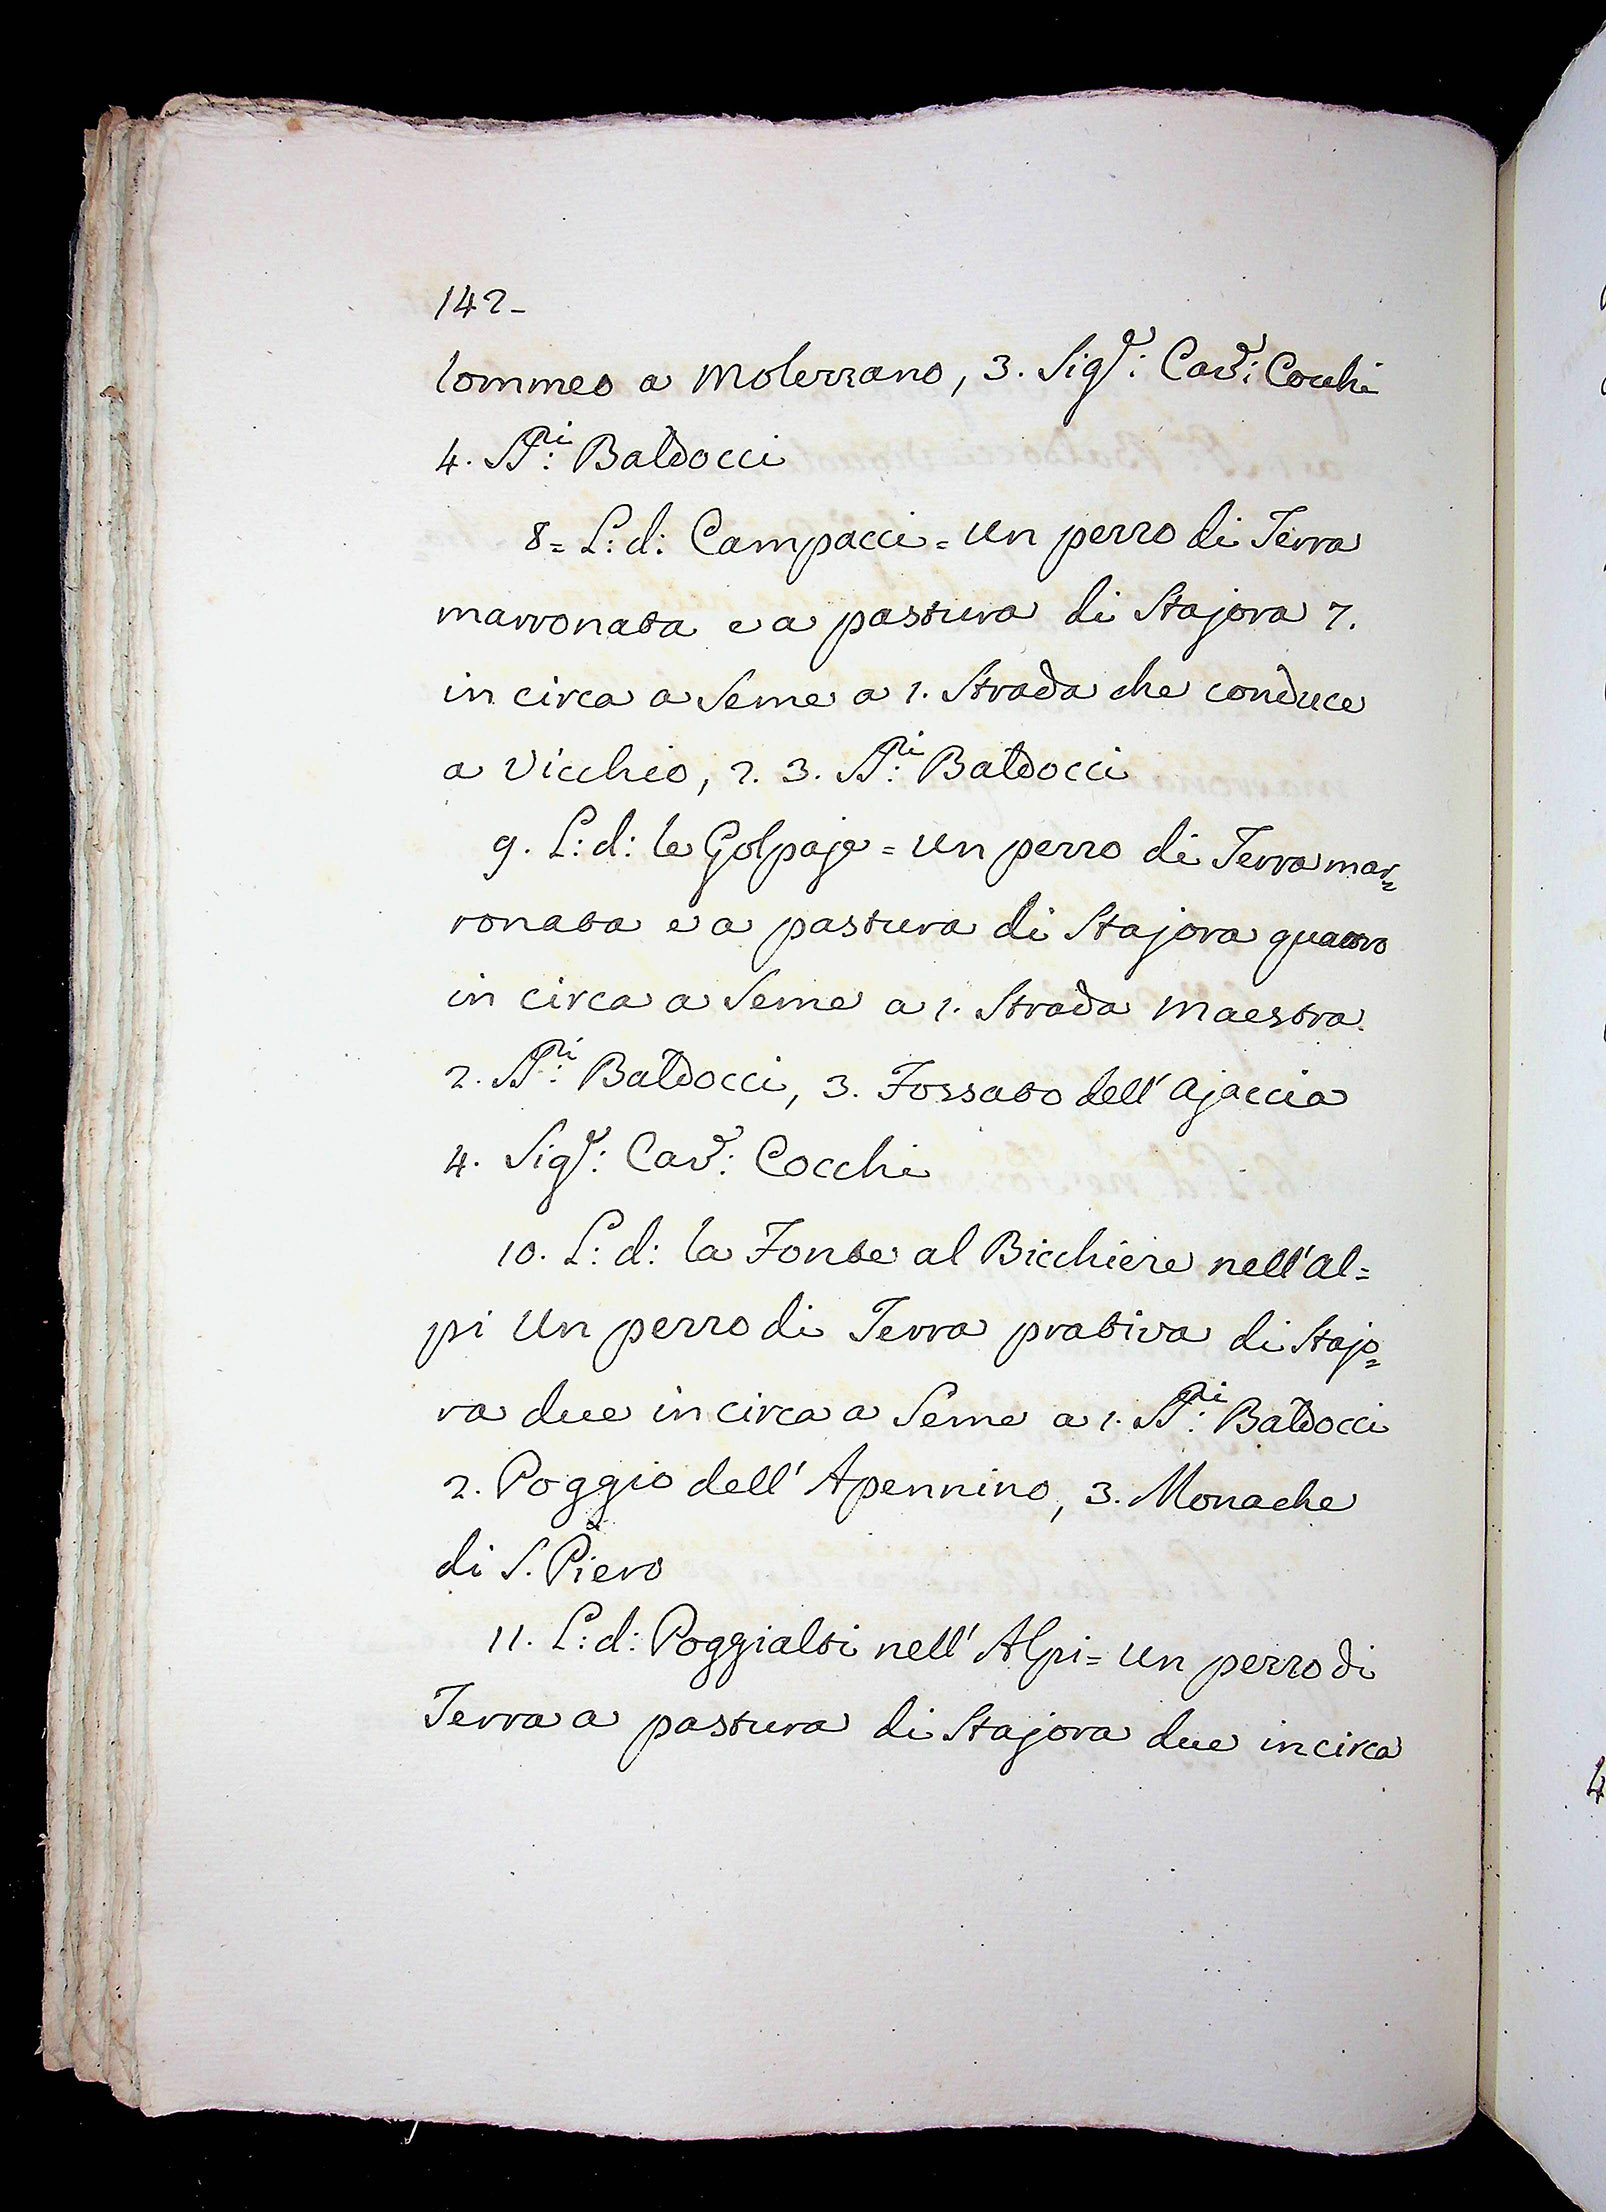 142-
lommeo a Molezzano, 3. Sig.r: Cav.r: Cocchi
4. SS.ri: Baldocci
8= L: d: Campacci = Un pezzo di Terra
marronata e a pastura di Stajora 7.
in circa a Seme a 1. Strada che conduce
a Vicchio, 2. 3. SS.ri: Baldocci
9. L: d: le Golpaje = Un pezzo di Terra mar=
ronata e a pastura di Stajora quattro
in circa a Seme a 1. Strada Maestra
2. SS.ri: Baldocci, 3. Fossato dell' Ajaccia
4. Sig.r: Cav.r: Cocchi
10. L: d: la Fonte al Bicchiere nell' Al=
pi Un pezzo di Terra prativa di Stajo=
ra due in circa a Seme a 1. SS.ri: Baldocci
2. Poggio dell' Apennino, 3. Monache
di S. Piero
11. L: d: Poggialti nell' Alpi = Un pezzo di
Terra a pastura di Stajora due in circa